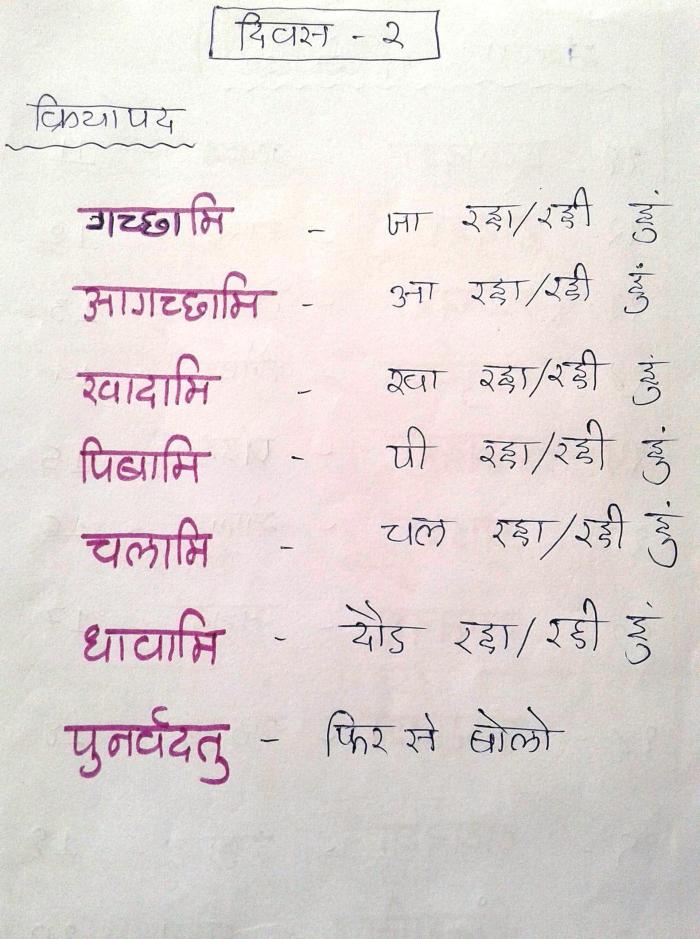 दिवस - २
क्रियापद
गच्छामि - जा रहा/रही हुं
आगच्छामि - आ रहा/रही हुं
खादामि - खा रहा/रही हुं
पिबामि - पी रहा/रही हुं
चलामि - चल रहा/रही हुं
धावामि - दौड रहा/रही हुं
पुनर्वदतु - फिर से बोलो